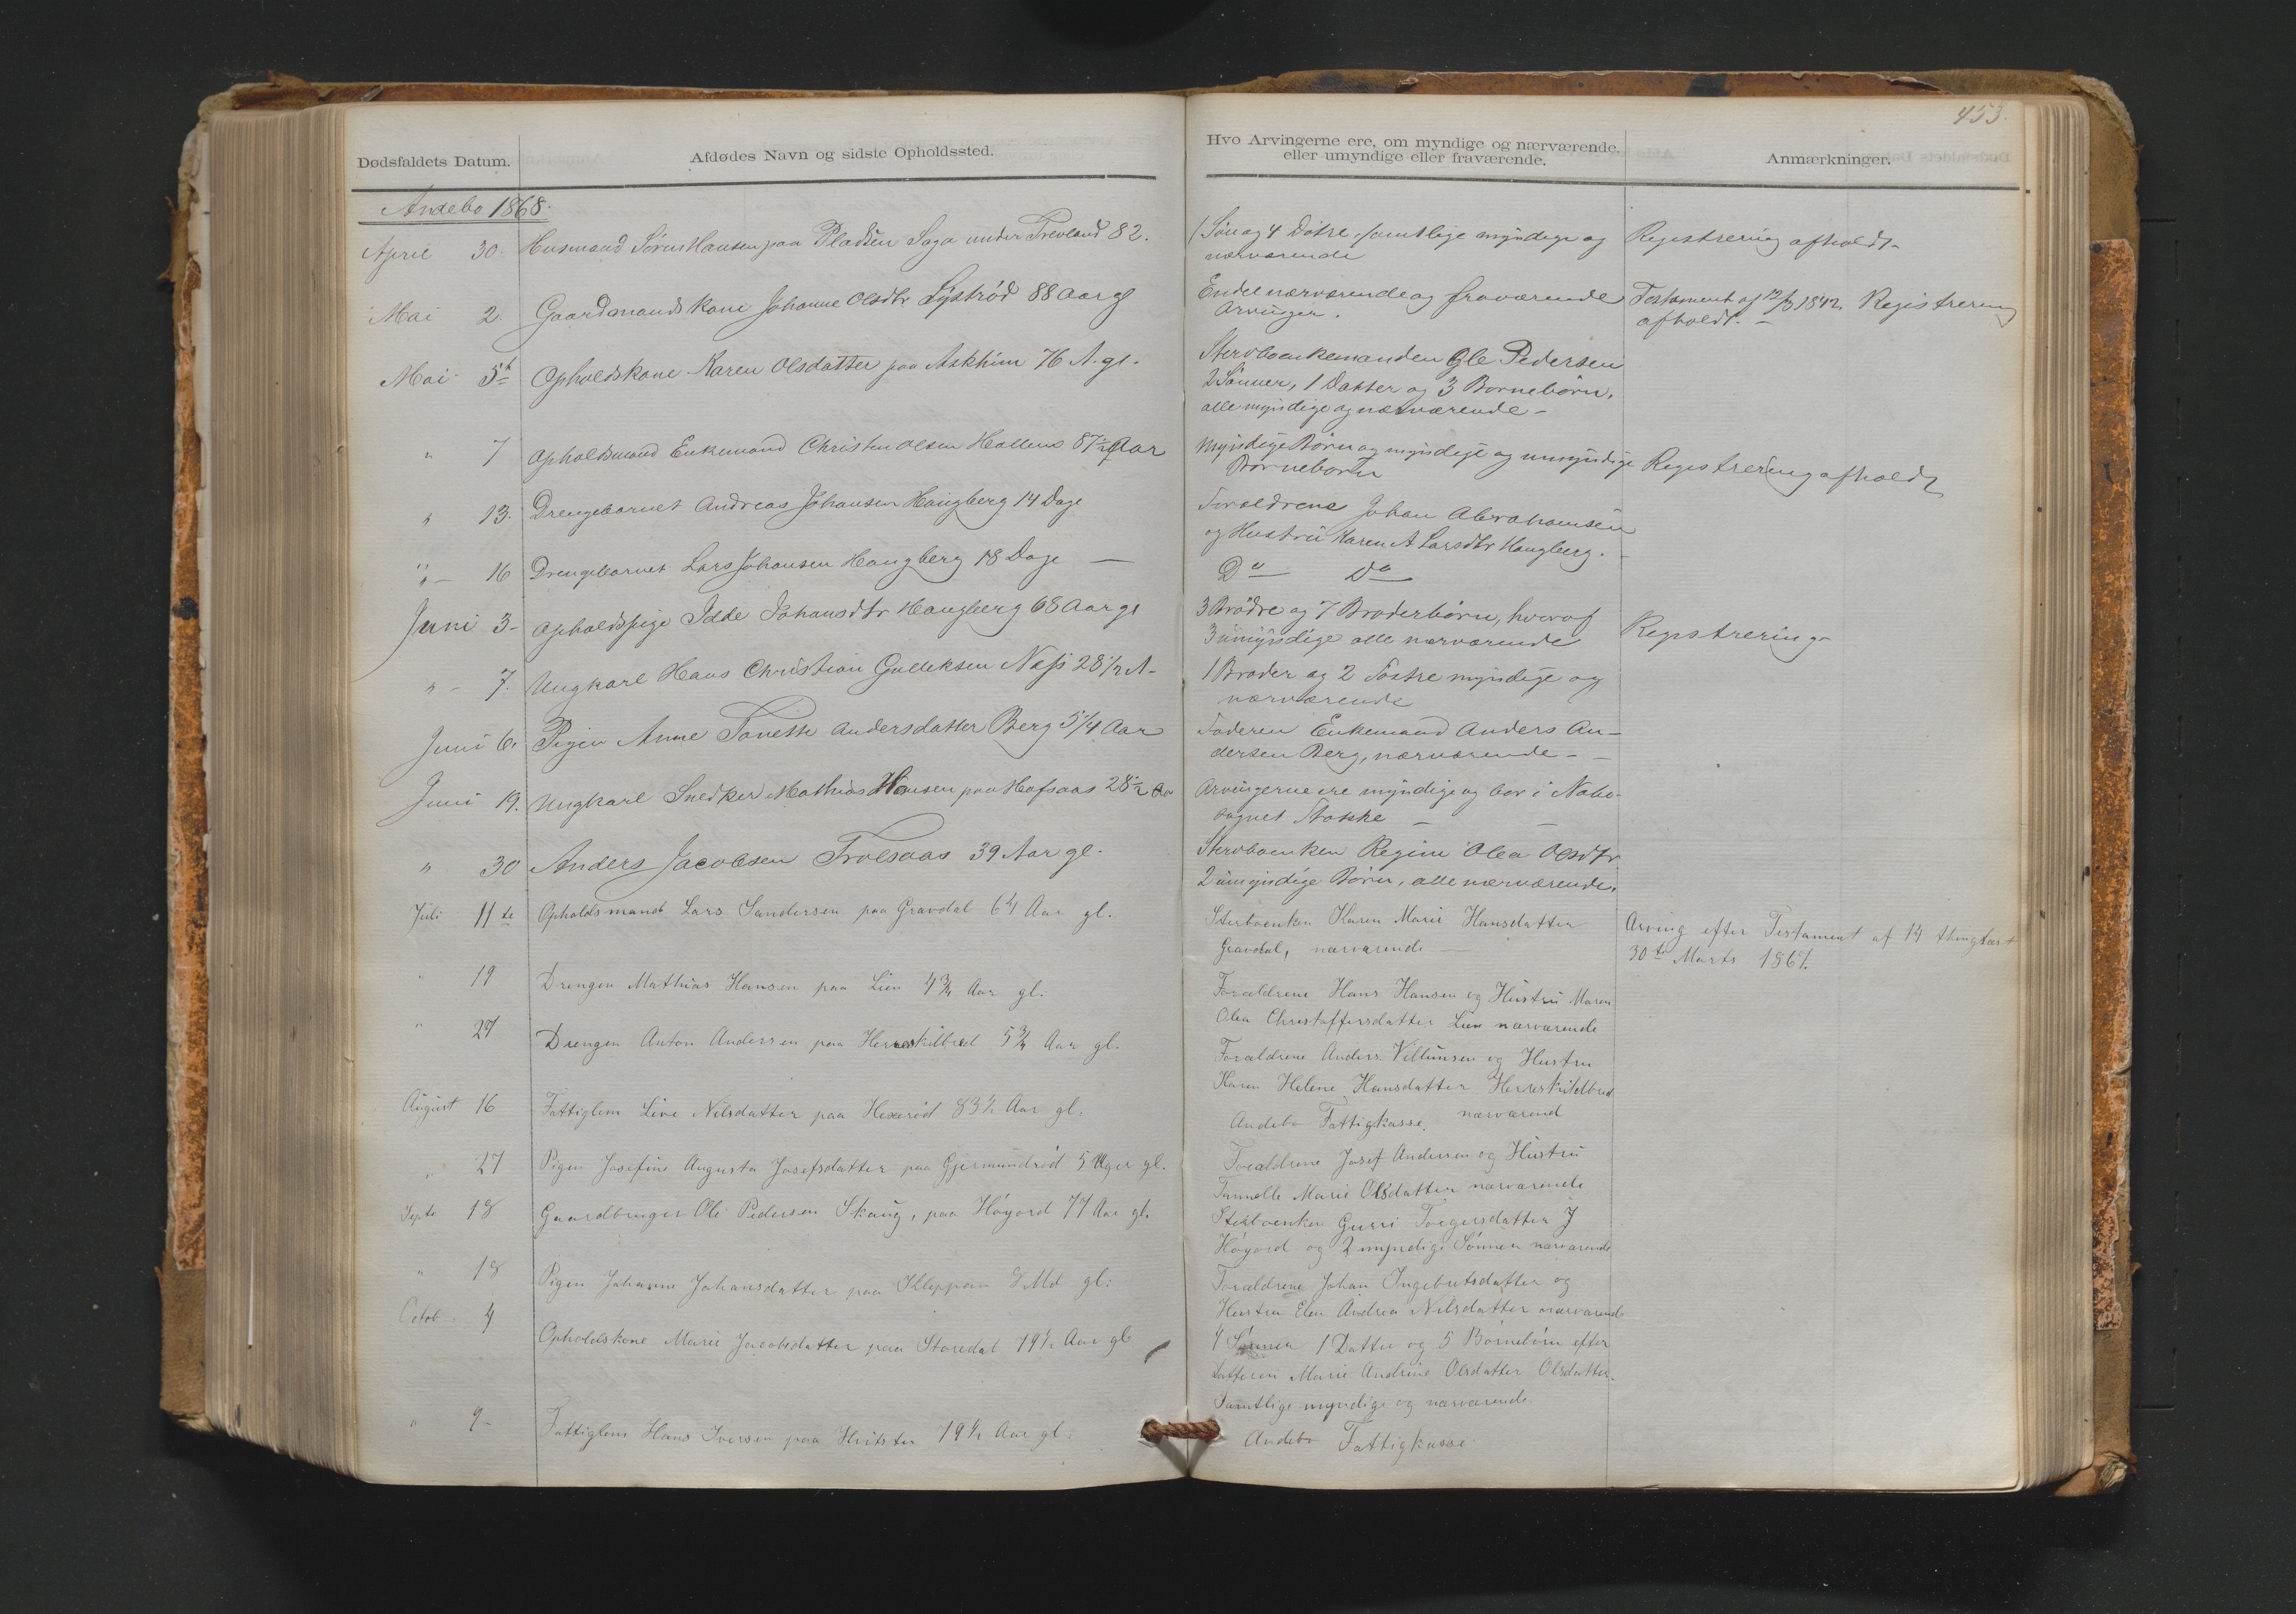 453.
Dødsfaldets Datum. Afdødes Navn og sidste Opholdssted. Hvo Arvingerne ere, om myndige og nærværende, eller umyndige eller fraværende. Anmærkninger.
Andebo 1868.
April 30. Husmand Sören Hansen paa Pladsen Saga under Trevland 82. 1 Sön og 4 Dötre, samtlige myndige og Registrering afholdt
nærværende
Mai 2. Gaardmandskone Johanne Olsdtr Lystrød 88 Aar gl Endel nærværende og fraværende Testament af 1842 Registrering
Arvinger. afholdt.
Mai 5t Opholdskone Karen Olsdatter paa Askhim 76 A. gl. Stervboenkemanden Ole Pedersen
2 Sönner, 1 Datter og 3 Bornebörn,
alle myndige og nærværende
" 7 Opholdsmand Enkemand Christen Olsen Hallens 87 1/2 Aar Myndige Börn og myndige og umyndige Registrering afholdt
Börnebörn
" 13. Drengebarnet Andreas Johansen Haugberg 14 Dage Foraldrene Johan Abrahamsen
og Hustru Karen A Larsdtr Haugberg.
" 16 Drengebarnet Lars Johansen Haugberg 18 Dage Do Do
Juni 3 Opholdspige Idde Johansdtr Haugberg 68 Aar gl 3 Brödre og 7 Broderbörn, hvoraf Registrering
3 umyndige alle nærværende
" 7. Ungkarl Hans Christian Gulleksen Næss 28 1/2 A 1 Broder og 2 Søstre myndige og
nærværende
Juni 6. Pigen Anne Tonette Andersdatter Berg 5 1/4 Aar Faderen Enkemand Anders An-
dersen Berg, nærværende
Juni 19. Ungkarl Snedker Mathias Hansen paa Hafsaas 28 1/2 Aar Arvingerne ere myndige og bor i Nabo-
sognet Stokke
" 30 Anders Jacobsen Trolsaas 39 Aar gl. Stervboenken Regine Olea Olsdtr
2 umyndige Börn, alle nærværende.
Juli 11te Opholdsmand Lars Sandersen paa Gravdal 64 Aar gl. Sterboenken Karen Marie Hansdatter Arving efter Testament af 14 thinglæst
Gravdal, nærværende 30te Marts 1867.
" 19 Drengen Mathias Hansen paa Lien 4 3/4 Aar gl. Foraldrene Hans Hansen og Hustru Maren
Olea Christoffersdatter Lien nærværende
" 27 Drengen Anton Andersen paa Herreskilbred 5 3/4 Aar gl. Foraldrene Anders Villumsen og Hustru
Karen Helene Hansdatter Herreskilelbred
nærværend
August 16 Fattiglem Live Nilsdatter paa Hexerød 83 1/2 Aar gl. Andebo Fattigkasse.
" 27 Pigen Josefine Augusta Josefsdatter paa Gjermundröd 5 Uger gl. Foraldrene Josef Andersen og Hustru
Tunnelle Marie Olsdatter nærværende
Septe 18 Gaardbruger Ole Pedersen Skaug, paa Höyord 77 Aar gl. Sterboenken Gurri Torgersdatter
Höyord og 2 myndige Sönner nærværende
" 18 Pigen Johanne Johansdatter paa Kleppan 8 Md gl: Foraldrene Johan Ingebretsdatter og
Hustru Elen Andrea Nilsdatter nærværende
Octob. 4 Opholdskone Marie Jacobsdatter paa Storedal 79 1/2 Aar gl 4 Sönner 1 Datter og 5 Börnebörn efter
Datteren Marie Andrine Olsdatter Olsdatter.
Samtlige myndige og nærværende
" 9 Fattiglem Hans Iversen paa 79 1/2 Aar gl. Andebo Fattigkasse